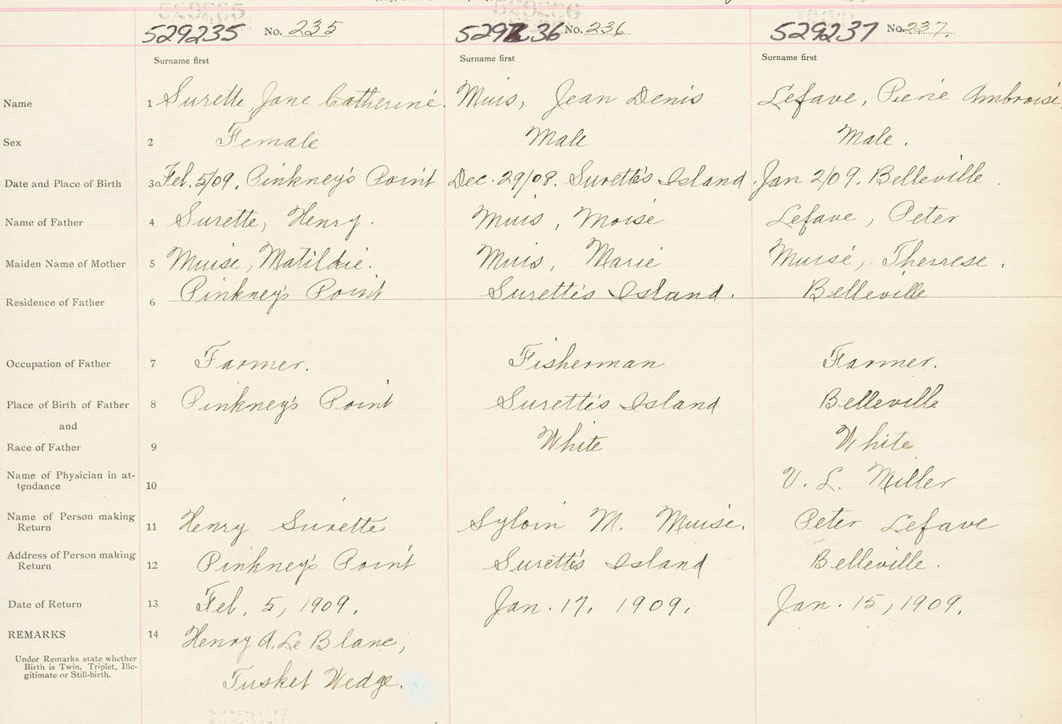 529235 No. 235 529236 No. 236 529237 No. 237.
Surname first Surname first Surname first
Name 1 Surette Jane Catherine. Muis, Jean Denis Lefave, Pierie Ambroise
Sex 2 Female Male Male.
Date and Place of Birth 3 Feb. 5/09, Pinkney's Point Dec. 29/08. Surette's Island. Jan 2/09. Belleville.
Name of Father 4 Surette, Henry. Muis, Moise Lefave, Peter
Maiden Name of Mother 5 Muise, Matildie. Muis, Marie Muisé, Therrese.
Residence of Father 6 Pinkney's Point Surette's Island. Belleville
Occupation of Father 7 Farmer. Fisherman Farmer.
Place of Birth of Father 8 Pinkney's Point Surette's Island Belleville
and
Race of Father 9 White White
Name of Physician in at-
tendance 10 V. L. Miller
Name of Person making
Return 11 Henry Surette Sylvin M. Muise. Peter Lefave
Address of Person making
Return 12 Pinkney's Point Surette's Island Belleville.
Date of Return 13 Feb. 5, 1909. Jan. 17. 1909. Jan. 15, 1909.
REMARKS 14 Henry A. Le Blanc,
Under Remarks state whether
Birth is Twin, Triplet, Ille-
gitimate or Still-birth.
Tusket Wedge.